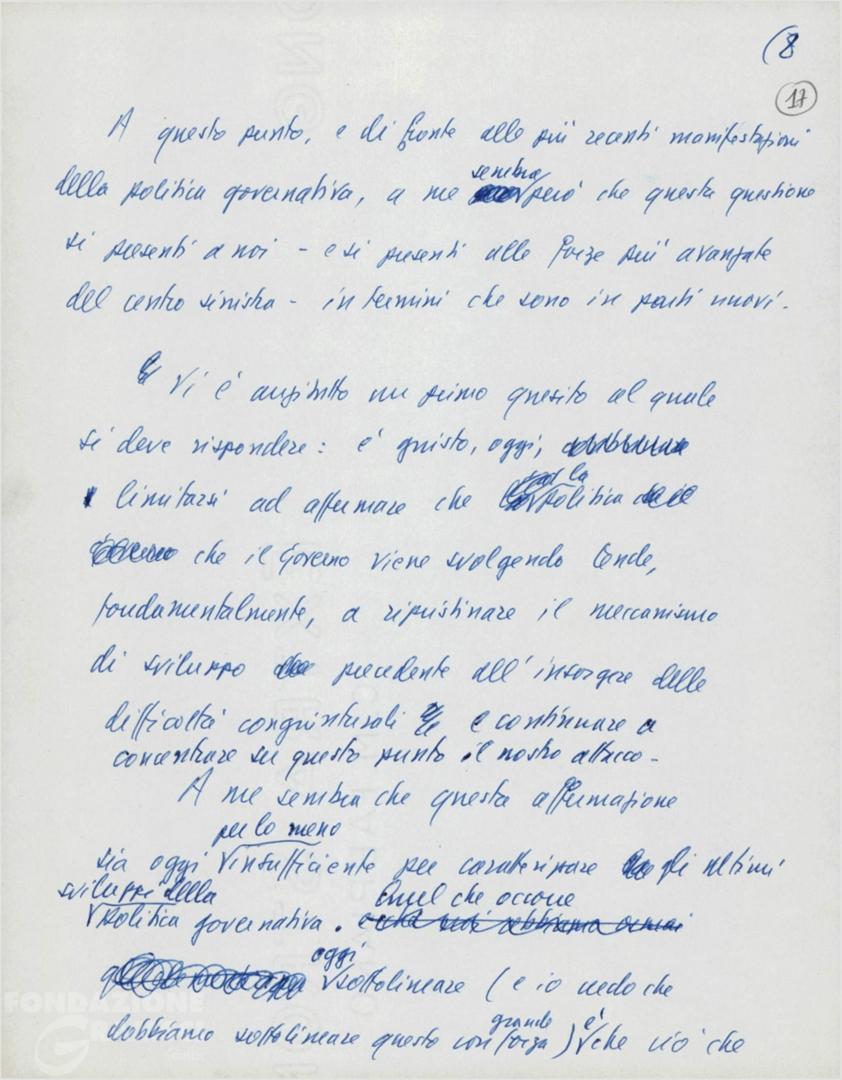 (8
17
A questo punto, e di fronte alle più recenti manifestazioni
della politica governativa, a me sembra però che questa questione
si presenti a noi - e si presenti alle forze più avanzate
del centro sinistra - in termini che sono in parti nuovi.
Vi è anzitutto un primo quesito al quale
si deve rispondere: è giusto, oggi,
limitarsi ad affermare che la politica
che il Governo viene svolgendo tende,
fondamentalmente, a ripristinare il meccanismo
di sviluppo precedente all'insorgere delle
difficoltà congiunturali e continuare a
concentrare su questo punto il nostro attacco.
A me sembra che questa affermazione
per lo meno
sia oggi insufficiente per caratterizzare gli ultimi
sviluppi della Quel che occorre
politica governativa.
oggi
sottolineare (e io credo che
dobbiamo sottolineare questo con grande forza) è che ciò che
FONDAZIONE